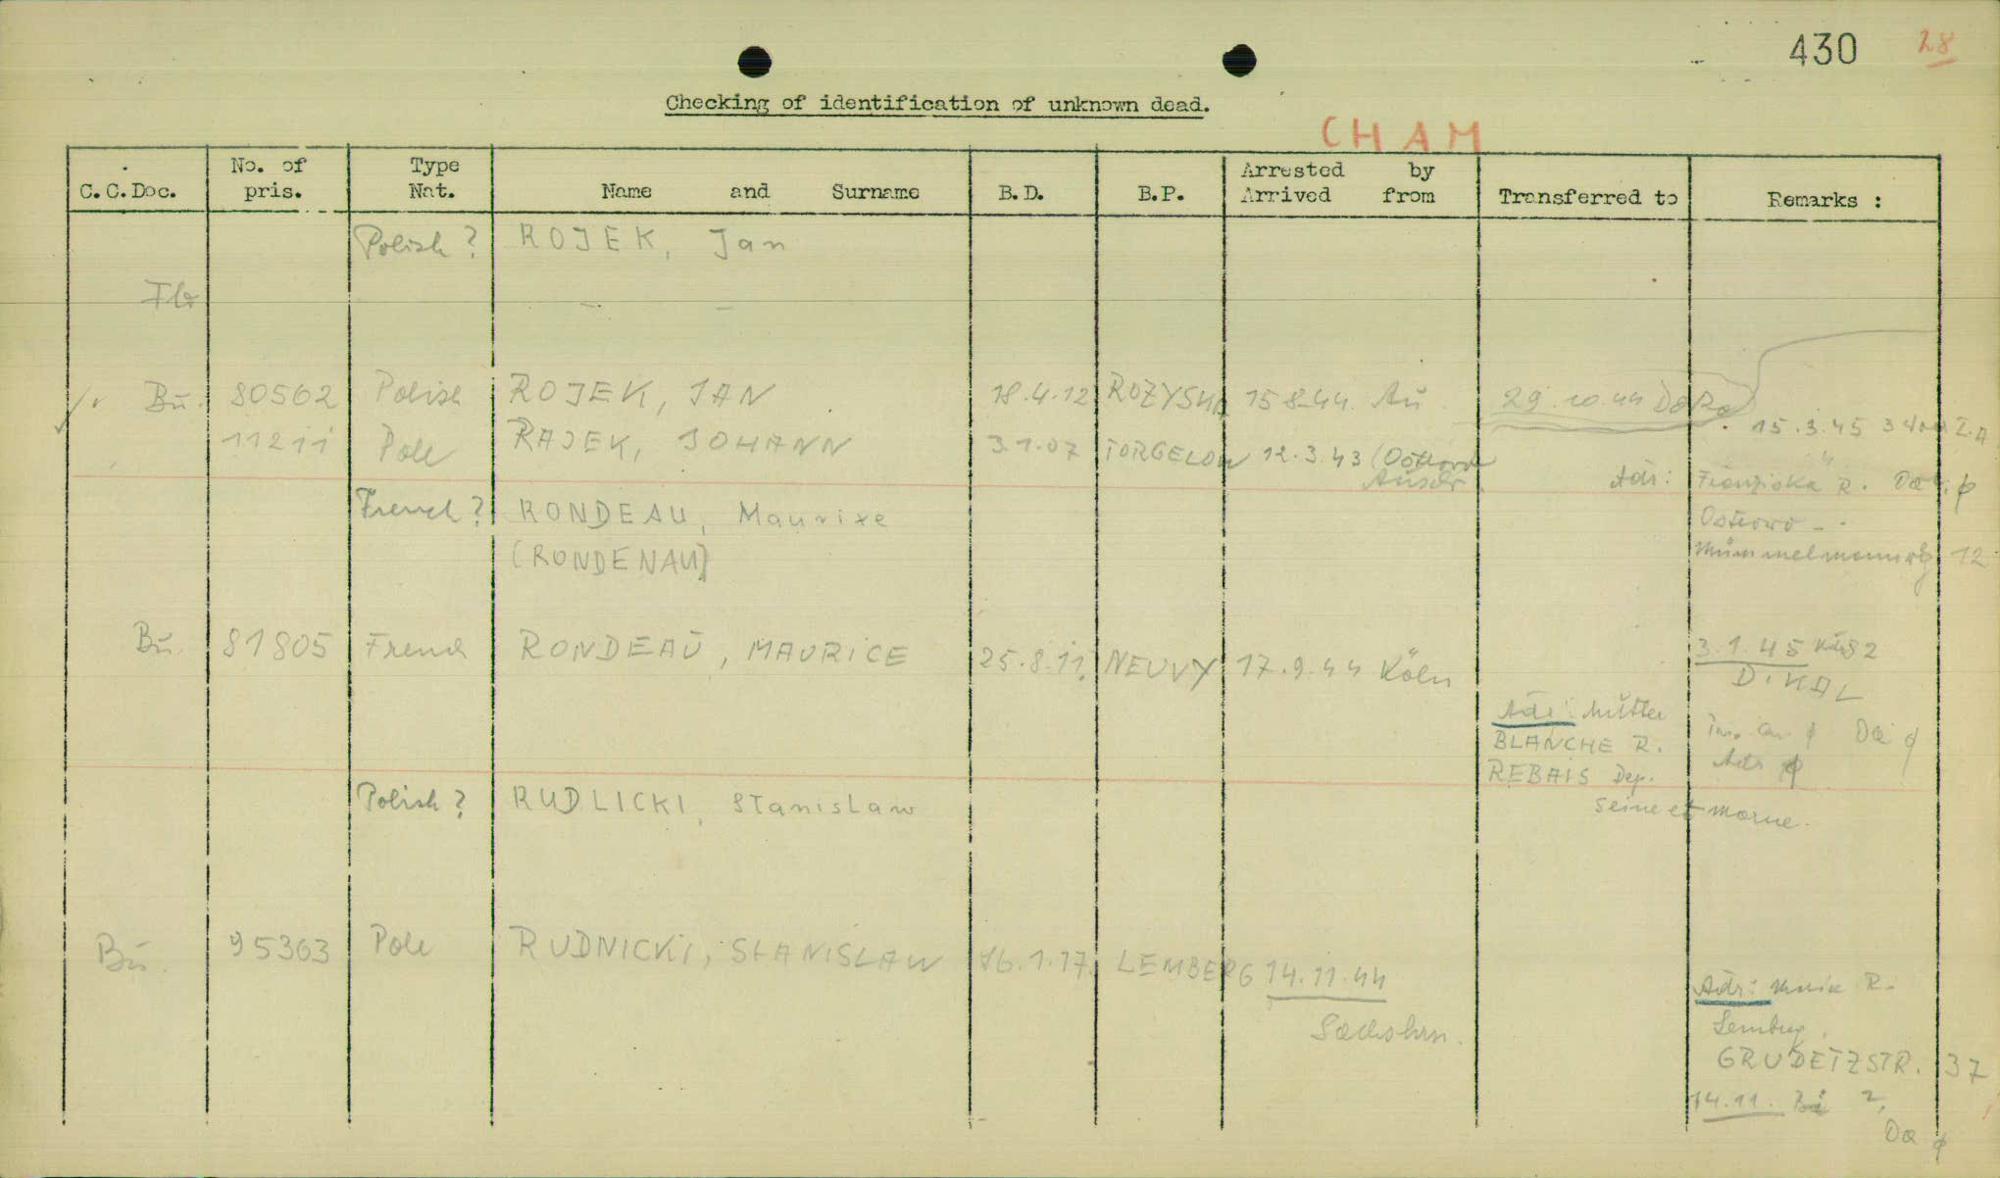 430 28
Checking of identification of unknown dead.
CHAM
C.C.Doc. No. of pris. Type Nat. Name and Surname B.D. B.P. Arrested by Arrived from Transferred to Remarks :
Polish? ROJEK, Jan
Flo
Bu. 80562 Polish ROJEK, JAN 18.4.12 15 8.44 Au 29.10.44 DORA
15.3.45
11211 Pole RAJEK, JOHANN 3.1.07 TORGELOW 12.3.43
Adr: Franziska R.
French? RONDEAU, Maurixe
Ostrowo
(RONDENAU)
12
Bu. 81805 French RONDEAU, MAURICE 25.8.11. NEUVY 17.9.44 Köln 3.1.45
D.KAL
Adr: Mutter
BLANCHE R.
REBAIS Dep.
Seine et Marne.
Polish? RUDLICKI, Stanislaw
Bu. 95363 Pole RUDNICKI, STANISLAW 16.1.17. LEMBERG 14.11.44
Sachshsn.
Adr: R.
Lemberg,
GRUDETZSTR. 37
14.11. 2,